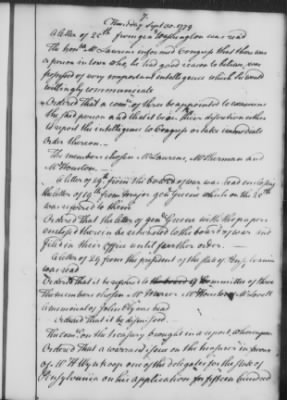 7
Thursday Sept 30. 1779
A letter of 26th from gen Washington was read
The honble Mr Laurens informed Congress that there was
a person in town who, he had good reason to believe, was
possessed of very important intelligence which he would
willingly communicate
Ordered That a comee of three be appointed to
the said person and that it be at their discretion either
to report the intelligence to Congress or take immediate
order thereon
The members chosen Mr Laurens, Mr Sherman and
Mr Houston.
A letter of 29th from the board of war was read enclosing
the letter of 19th from major genl Greene which on the 25
was referred to them
Ordered That the letter of genl Greene with the papers
enclosed therein be returned to the board of war and
filed in their office until farther order.
A letter of 29 from the president of the state of Pensylvania
was read
Ordered That it be referred to the board of Committee of three
The members chosen Mr Mr Houston Mr Lovell
A memorial of John was read
Ordered That it be dismissed.
The comee on the treasury brought in a report, Whereupon
Ordered That a warrant issue on the treasurer in favour
of Mr H Wynkoop one of the delegates for the state of
Pensylvania on his application for fifteen hundred